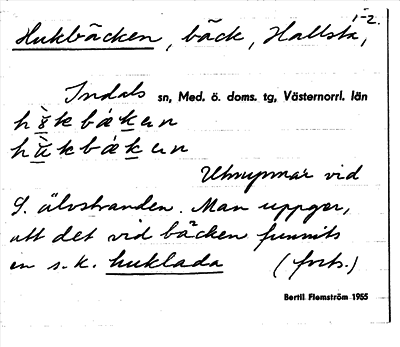 1-2.
Hukbäcken, bäck, Hallsta,
Indals sn, Med. ö. doms. tg, Västernorrl. län
Utmynnar vid
S. älvstranden. Man uppger,
att det vid bäcken funnits
en s.k. huklada (forts.)
Bertil Flemström 1955